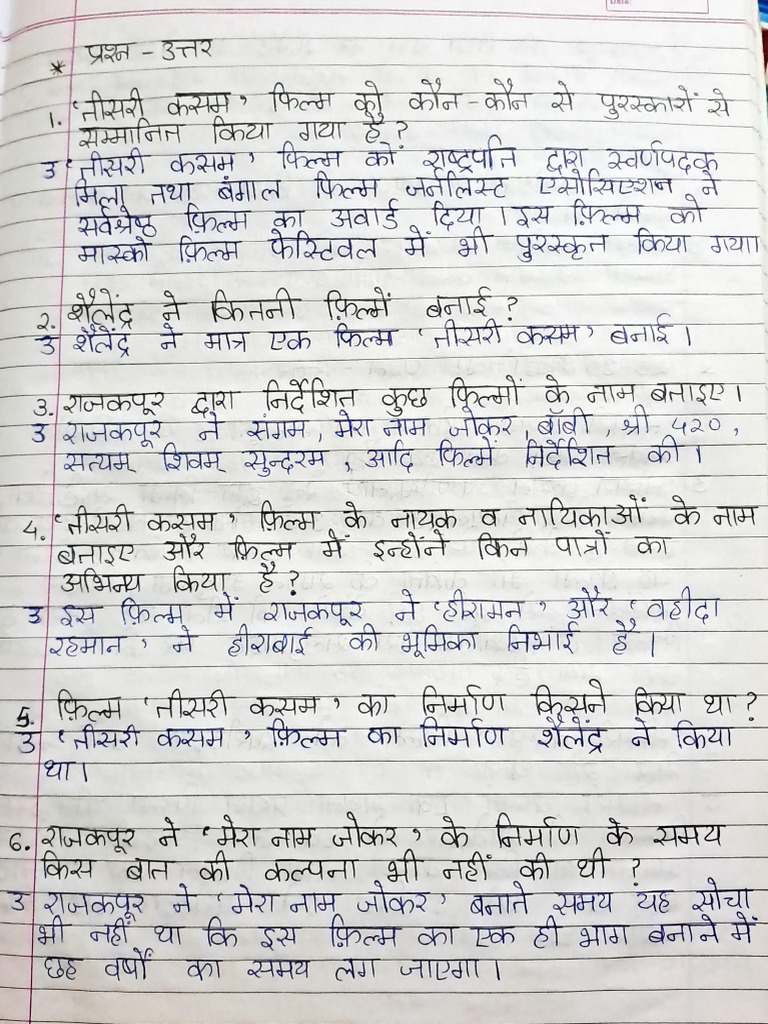 Date:
* प्रश्न - उत्तर
1. 'तीसरी कसम' फिल्म को कौन-कौन से पुरस्कारों से
सम्मानित किया गया है ?
उ 'तीसरी कसम' फिल्म को राष्ट्रपति द्वारा स्वर्णपदक
मिला तथा बंगाल फिल्म जर्नलिस्ट एसोसिएशन ने
सर्वश्रेष्ठ फ़िल्म का अवार्ड दिया । इस फ़िल्म को
मास्को फ़िल्म फेस्टिवल में भी पुरस्कृत किया गया।
2. शैलेंद्र ने कितनी फ़िल्में बनाई ?
उ शैलेंद्र ने मात्र एक फिल्म 'तीसरी कसम' बनाई ।
3. राजकपूर द्वारा निर्देशित कुछ फ़िल्मों के नाम बताइए ।
उ राजकपूर ने संगम, मेरा नाम जोकर, बॉबी, श्री ५२०,
सत्यम् शिवम् सुन्दरम, आदि फिल्में निर्देशित की ।
4. 'तीसरी कसम' फ़िल्म के नायक व नायिकाओं के नाम
बताइए और फ़िल्म में इन्होंने किन पात्रों का
अभिनय किया है ?
उ इस फ़िल्म में राजकपूर ने 'हीरामन' और 'वहीदा
रहमान' ने हीराबाई की भूमिका निभाई है ।
5. फ़िल्म 'तीसरी कसम' का निर्माण किसने किया था ?
उ 'तीसरी कसम' फ़िल्म का निर्माण शैलेंद्र ने किया
था ।
6. राजकपूर ने 'मेरा नाम जोकर' के निर्माण के समय
किस बात की कल्पना भी नहीं की थी ?
उ राजकपूर ने 'मेरा नाम जोकर' बनाते समय यह सोचा
भी नहीं था कि इस फ़िल्म का एक ही भाग बनाने में
छह वर्षों का समय लग जाएगा ।